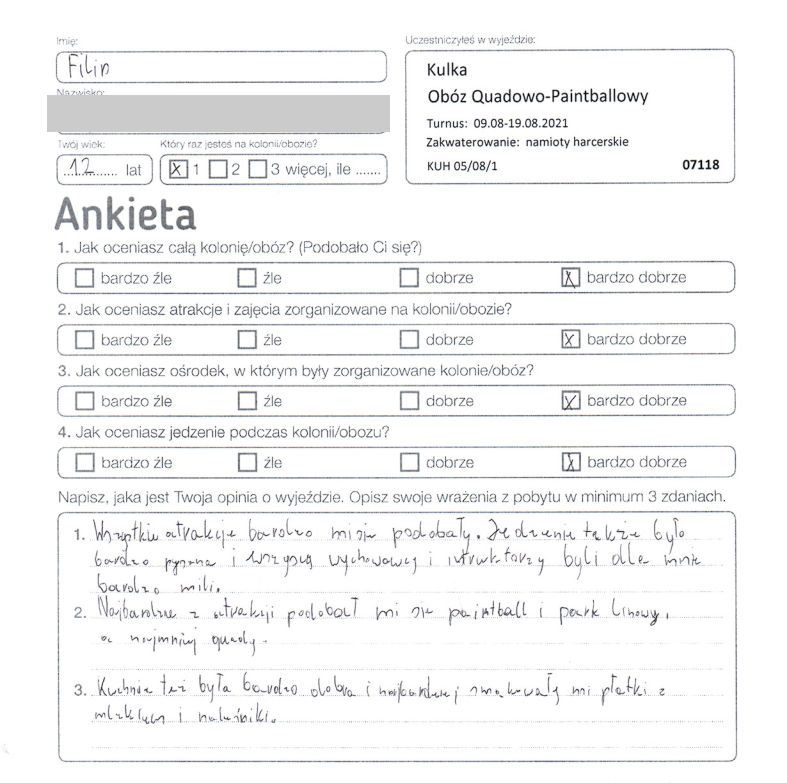 Imię:
Filip
Nazwisko:
Twój wiek:
12 lat
Który raz jesteś na kolonii/obozie?
X 1 2 3 więcej, ile .......
Uczestniczyłeś w wyjeździe:
Kulka
Obóz Quadowo-Paintballowy
Turnus: 09.08-19.08.2021
Zakwaterowanie: namioty harcerskie
KUH 05/08/1 07118
Ankieta
1. Jak oceniasz całą kolonię/obóz? (Podobało Ci się?)
bardzo źle źle dobrze X bardzo dobrze
2. Jak oceniasz atrakcje i zajęcia zorganizowane na kolonii/obozie?
bardzo źle źle dobrze X bardzo dobrze
3. Jak oceniasz ośrodek, w którym były zorganizowane kolonie/obóz?
bardzo źle źle dobrze X bardzo dobrze
4. Jak oceniasz jedzenie podczas kolonii/obozu?
bardzo źle źle dobrze X bardzo dobrze
Napisz, jaka jest Twoja opinia o wyjeździe. Opisz swoje wrażenia z pobytu w minimum 3 zdaniach.
1. Wszystkie atrakcje bardzo mi się podobały. Jedzenie także było
bardzo pyszne i wszyscy wychowawcy i istruktorzy byli dla mnie
bardzo mili.
2. Najbardzie z atrakcji podobał mi się paintball i park linowy,
a najmniej quady.
3. Kuchnia też była bardzo dobra i najbardziej smakowały mi płatki z
mlekiem i naleśniki.